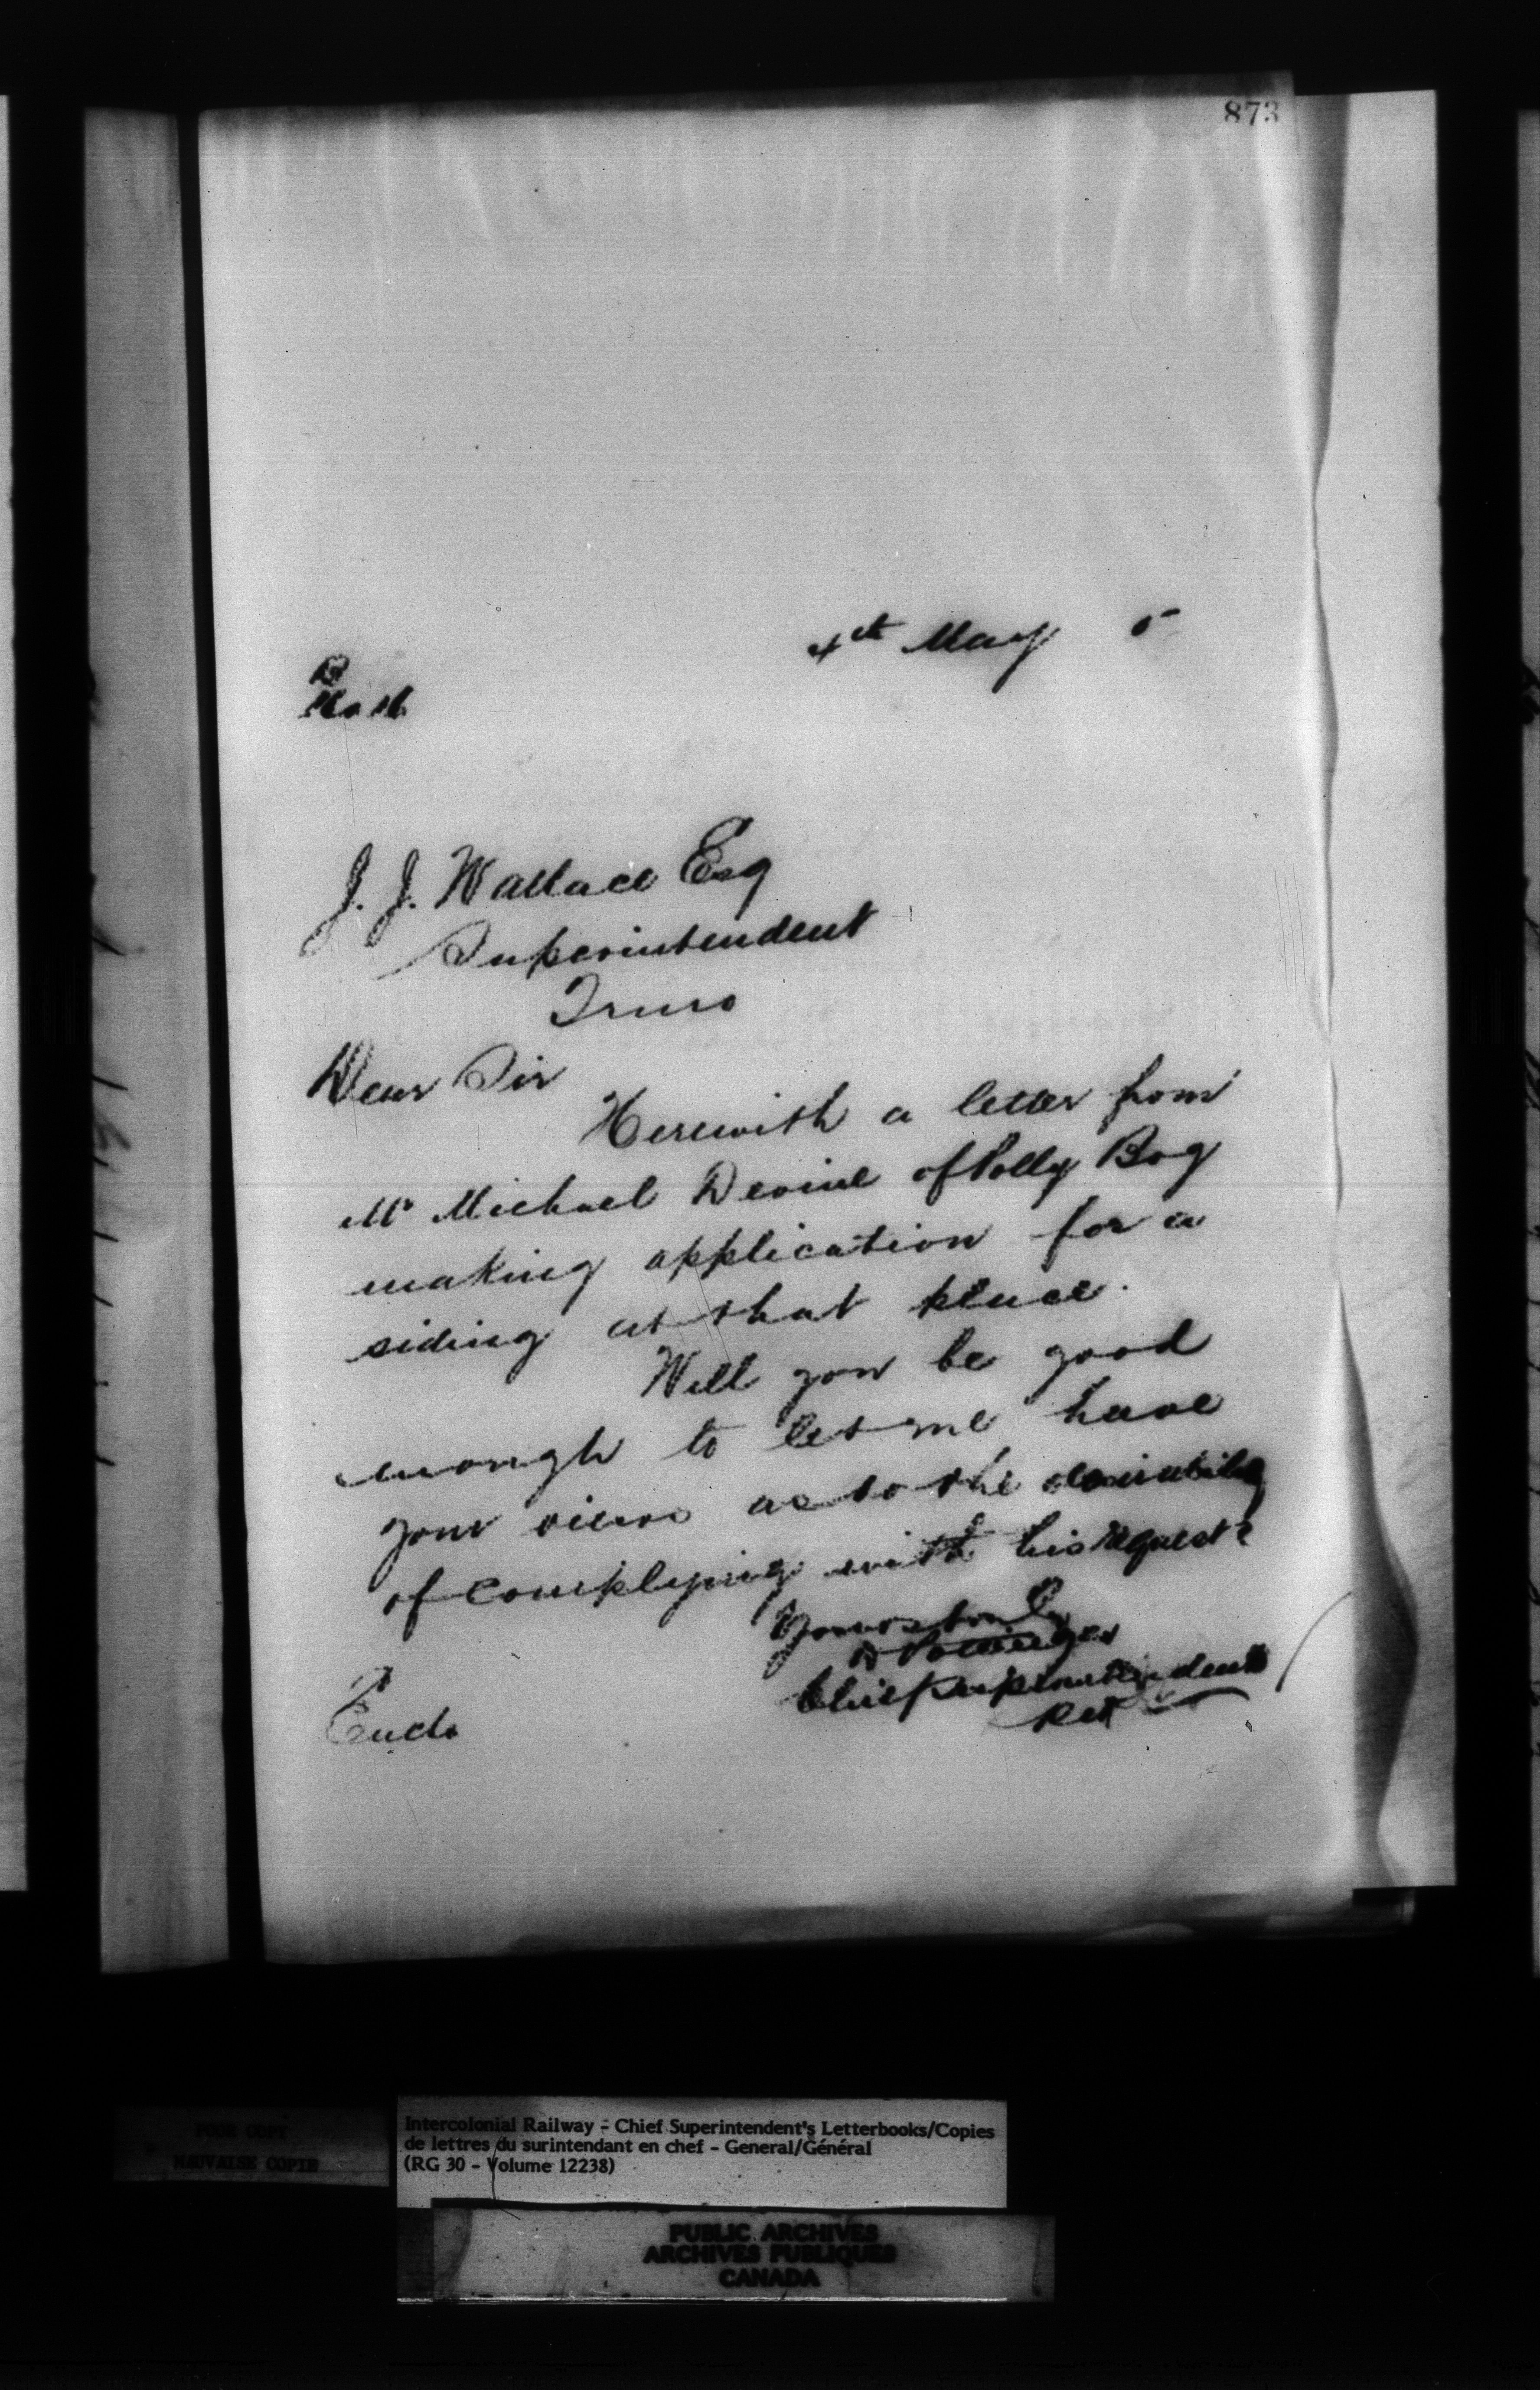 873
4th May 5
J. J. Wallace Esq
Superintendent
Truro
Dear Sir
Herewith a letter from
Mr Michael Devine of Polly Bog
making application for a
siding at that place.
Will you be good
enough to let me have
your views as to the desirability
of complying with his request?
Yours truly
D Pottinger
Chief Superintendent
Encl.
POOR COPY
MAUVAISE COPIE
Intercolonial Railway - Chief Superintendent's Letterbooks/Copies
de lettres du surintendant en chef - General/Général
(RG 30 - Volume 12238)
PUBLIC ARCHIVES
ARCHIVES PUBLIQUES
CANADA